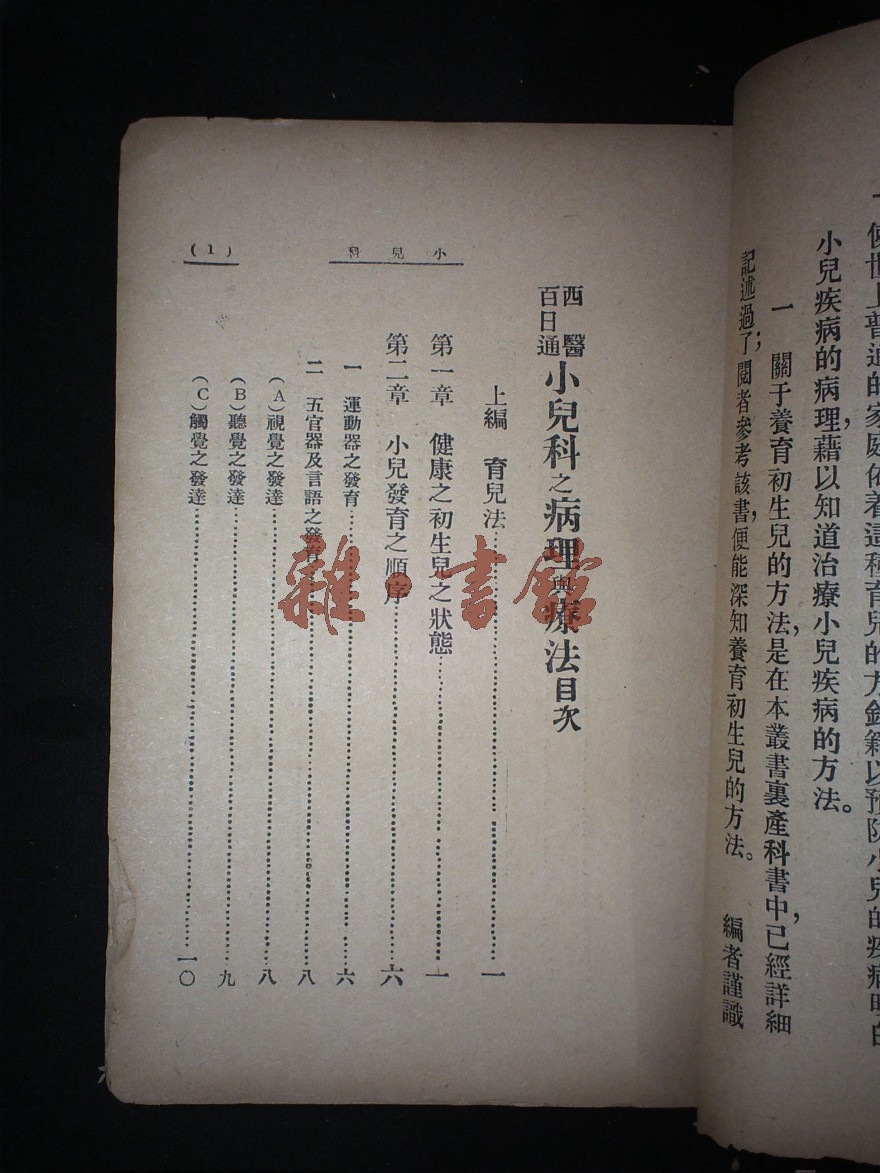 小兒疾病的病理，藉以知道治療小兒疾病的方法。
一　關于養育初生兒的方法，是在本叢書裏產科書中，已經詳細
記述過了；閱者參考該書，便能深知養育初生兒的方法。　編者謹識
小兒科
(1)
西醫
百日通
小兒科之病理與療法目次
上編　育兒法……一
第一章　健康之初生兒之狀態……一
第二章　小兒發育之順序……六
一　運動器之發育……六
二　五官器及言語之發育……八
(A)視覺之發達……八
(B)聽覺之發達……九
(C)觸覺之發達……一〇
雜·書館